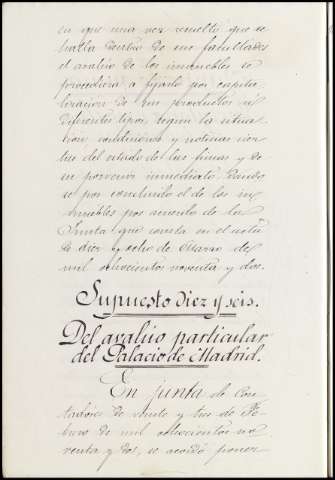 en que una vez resuelto que se
halla dentro de sus facultades
el avalúo de los inmuebles se
procediera a fijarlo por capita-
lizacion de sus productos á
diferentes tipos segun la situa-
cion condiciones y noticias cier-
tas del estado de las fincas y de
su porvenir inmediato. Dando-
se por concluido el de los in-
muebles por acuerdo de la
Junta que consta en el acta
de diez y ocho de Marzo de
mil ochocientos noventa y dos.
Supuesto diez y seis.
Del avalúo particular
del Palacio de Madrid.
En junta de Con-
tadores de veinte y tres de Fe-
brero de mil ochocientos no-
venta y dos, se acordó poner